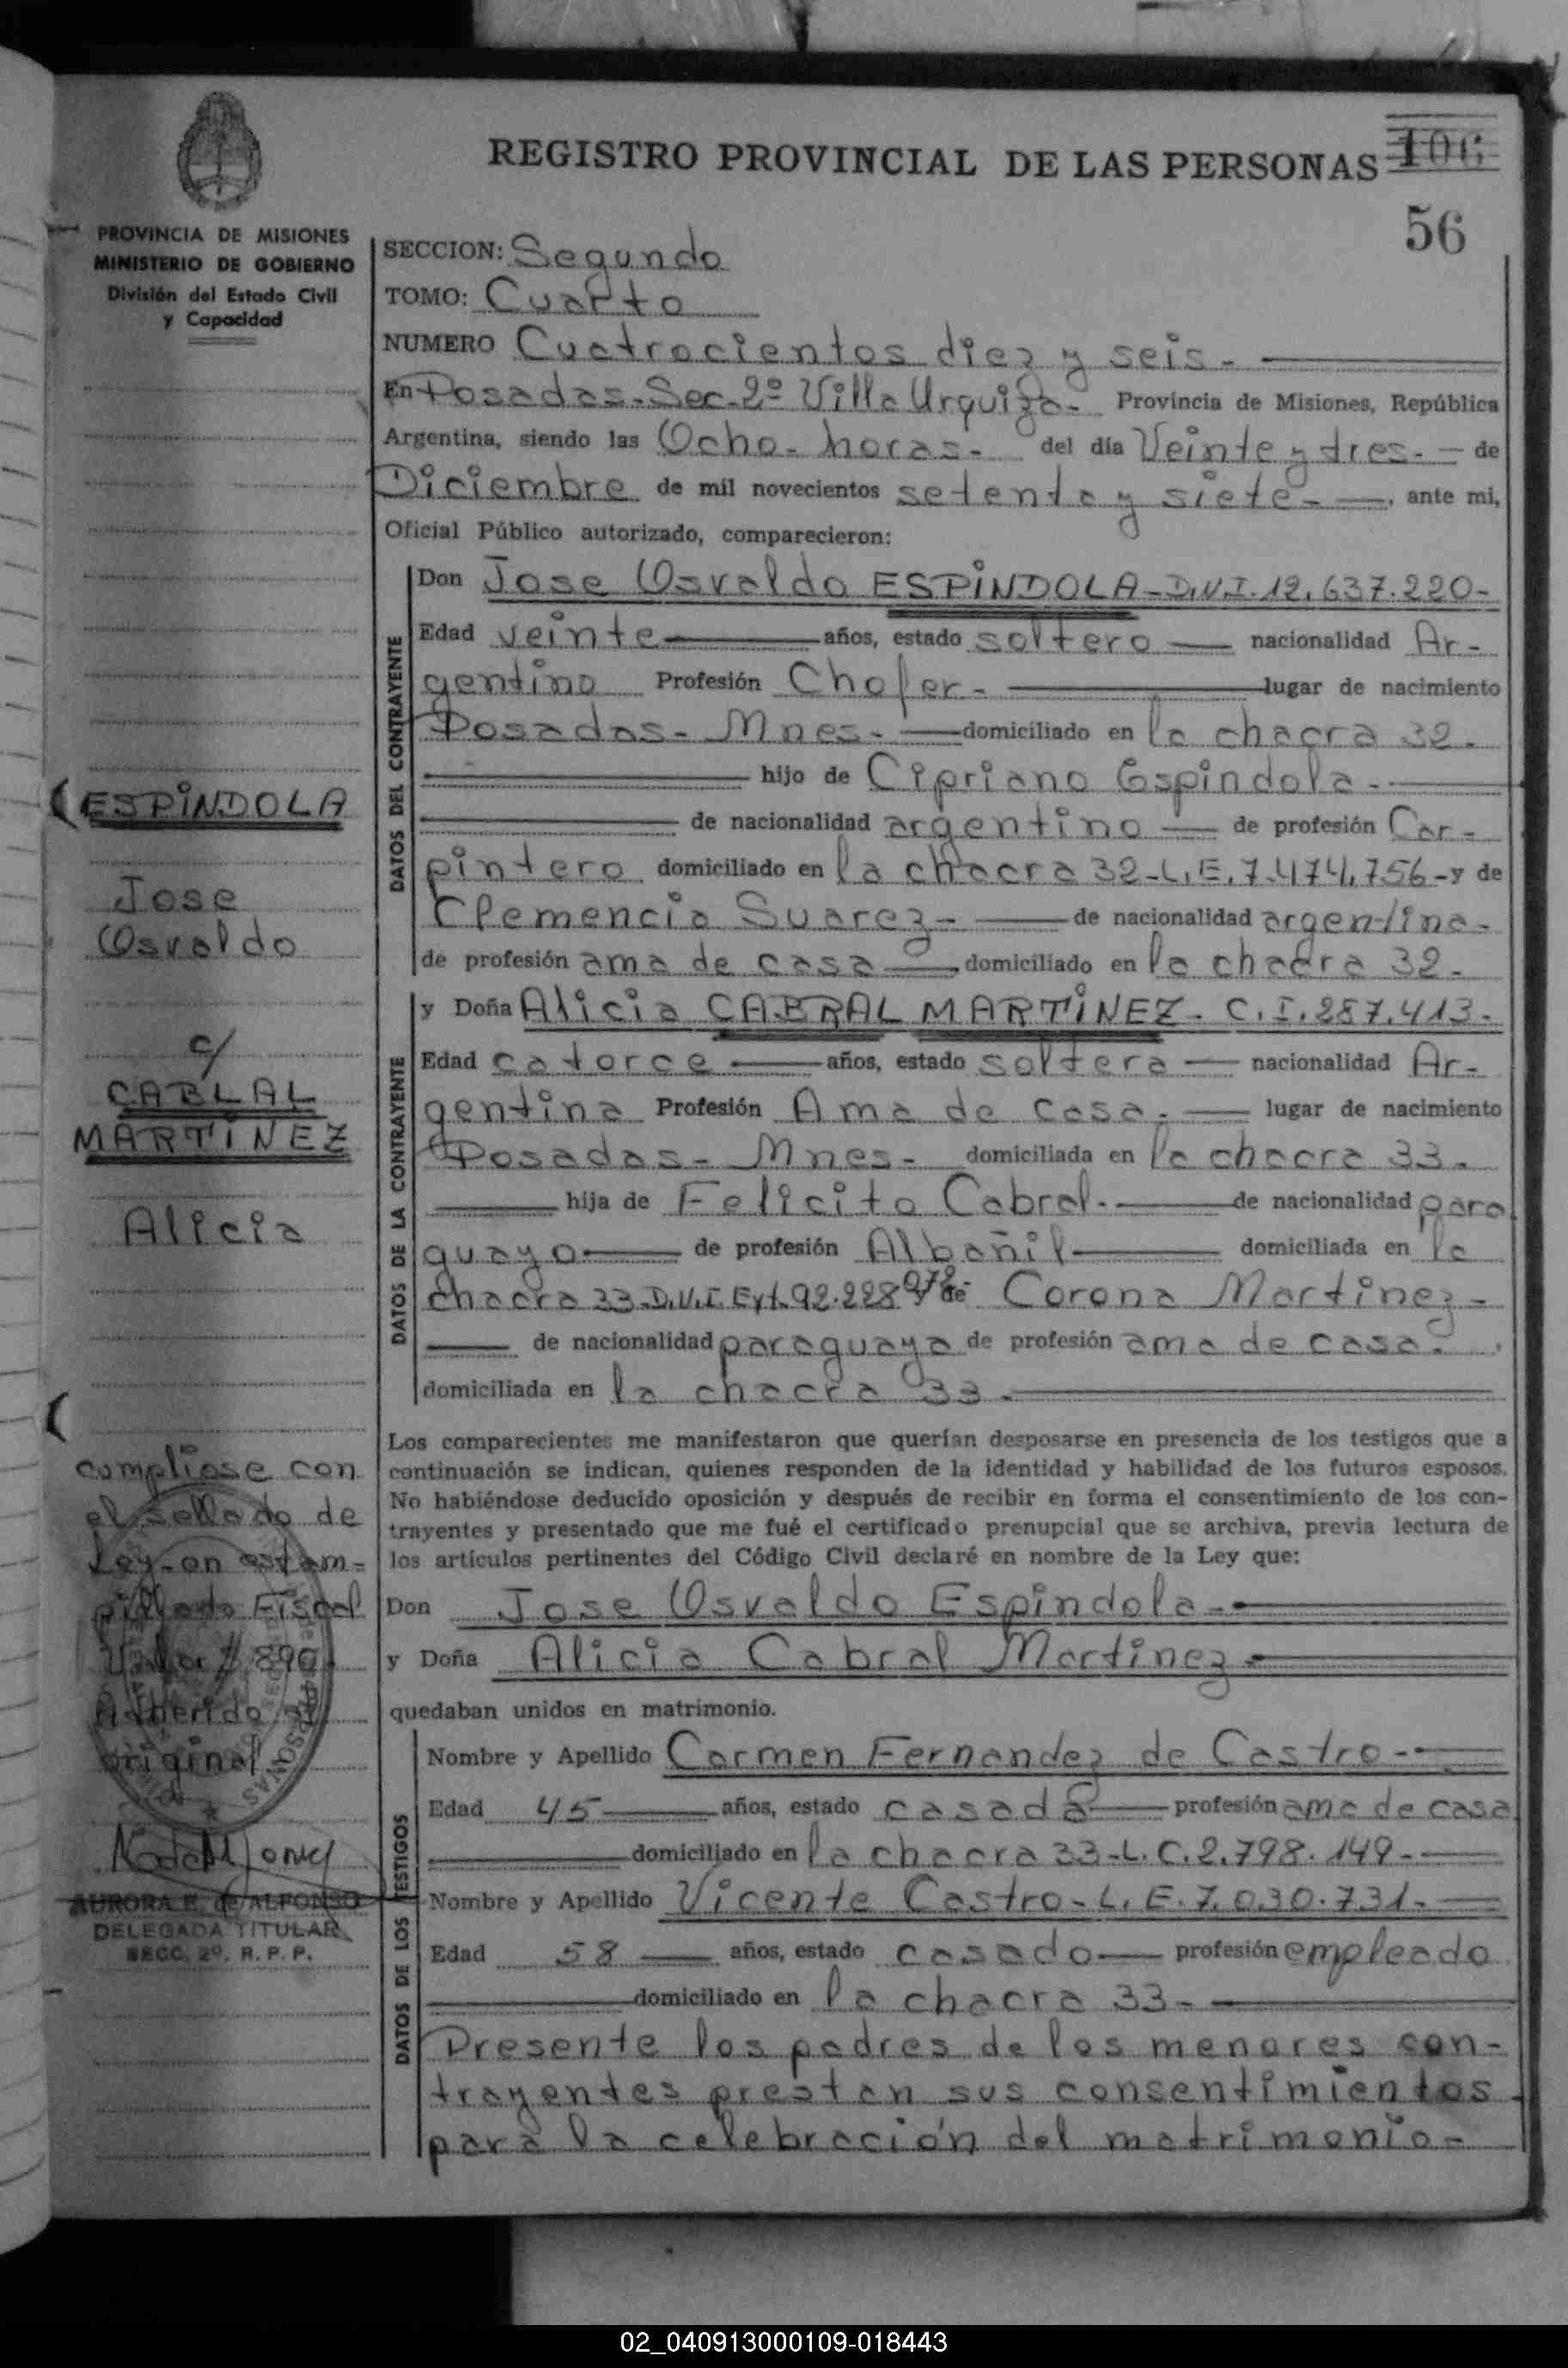 REGISTRO PROVINCIAL DE LAS PERSONAS 106
56
PROVINCIA DE MISIONES
MINISTERIO DE GOBIERNO
División del Estado Civil
y Capacidad
SECCION: Segundo
TOMO: Cuarto
NUMERO Cuatrocientos diez y seis.-
En Posadas-Sec-2º Villa Urquiza- Provincia de Misiones, República
Argentina, siendo las Ocho- horas.- del día Veinte y tres.- de
Diciembre de mil novecientos setenta y siete.-, ante mi,
Oficial Público autorizado, comparecieron:
DATOS DEL CONTRAYENTE
Don Jose Osvaldo ESPINDOLA-D.N.I.12.637.220-
Edad veinte años, estado soltero nacionalidad Ar-
gentino Profesión Chofer.- lugar de nacimiento
Posadas- Mnes.- domiciliado en la chacra 32.
hijo de Cipriano Espindola.-
de nacionalidad argentino de profesión Car-
pintero domiciliado en la chacra 32-L.E.7.474.756-y de
Clemencia Suarez- de nacionalidad argentina-
de profesión ama de casa, domiciliado en la chacra 32.
DATOS DE LA CONTRAYENTE
y Doña Alicia CABRAL MARTINEZ- C.I.287.413-
Edad catorce años, estado soltera nacionalidad Ar-
gentina Profesión Ama de casa.- lugar de nacimiento
Posadas- Mnes- domiciliada en la chacra 33.
hija de Felicito Cabral.- de nacionalidad para
guayo de profesión Albañil domiciliada en la
chacra 33-D.N.I.Ext.92.228 y de Corona Martinez-
de nacionalidad paraguaya de profesión ama de casa.
domiciliada en la chacra 33.
Los comparecientes me manifestaron que querían desposarse en presencia de los testigos que a
continuación se indican, quienes responden de la identidad y habilidad de los futuros esposos.
No habiéndose deducido oposición y después de recibir en forma el consentimiento de los con-
trayentes y presentado que me fué el certificado prenupcial que se archiva, previa lectura de
los artículos pertinentes del Código Civil declaré en nombre de la Ley que:
Don Jose Osvaldo Espindola.-
y Doña Alicia Cabral Martinez.-
quedaban unidos en matrimonio.
DATOS DE LOS TESTIGOS
Nombre y Apellido Carmen Fernandez de Castro.-
Edad 45 años, estado casada profesión ama de casa
domiciliado en la chacra 33-L.C.2.798.149.-
Nombre y Apellido Vicente Castro-L.E.7.030.731.-
Edad 58 años, estado casado profesión empleado
domiciliado en la chacra 33-
Presente los padres de los menores con-
trayentes prestan sus consentimientos
para la celebración del matrimonio-
(ESPINDOLA
Jose
Osvaldo
c/
CABLAL
MARTINEZ
Alicia
(
cumpliose con
el sellado de
Ley-en estam-
pillado Fiscal
Valor $ 890
Adherido al
original
AURORA E. de ALFONSO
DELEGADA TITULAR
SECC. 2º. R. P. P.
02_040913000109-018443